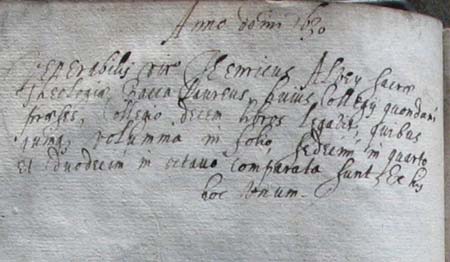 Anno domi 1630
Venerabilis vir Henricus Alvey sacræ
Theologiæ Baccalaureus huius Collegij quondam
præses, Collegio decem libras legavit, quibus
quinq volumina in folio, sedecim in quarto
et duodecim in octavo comparata sunt, Ex his
hoc unum.